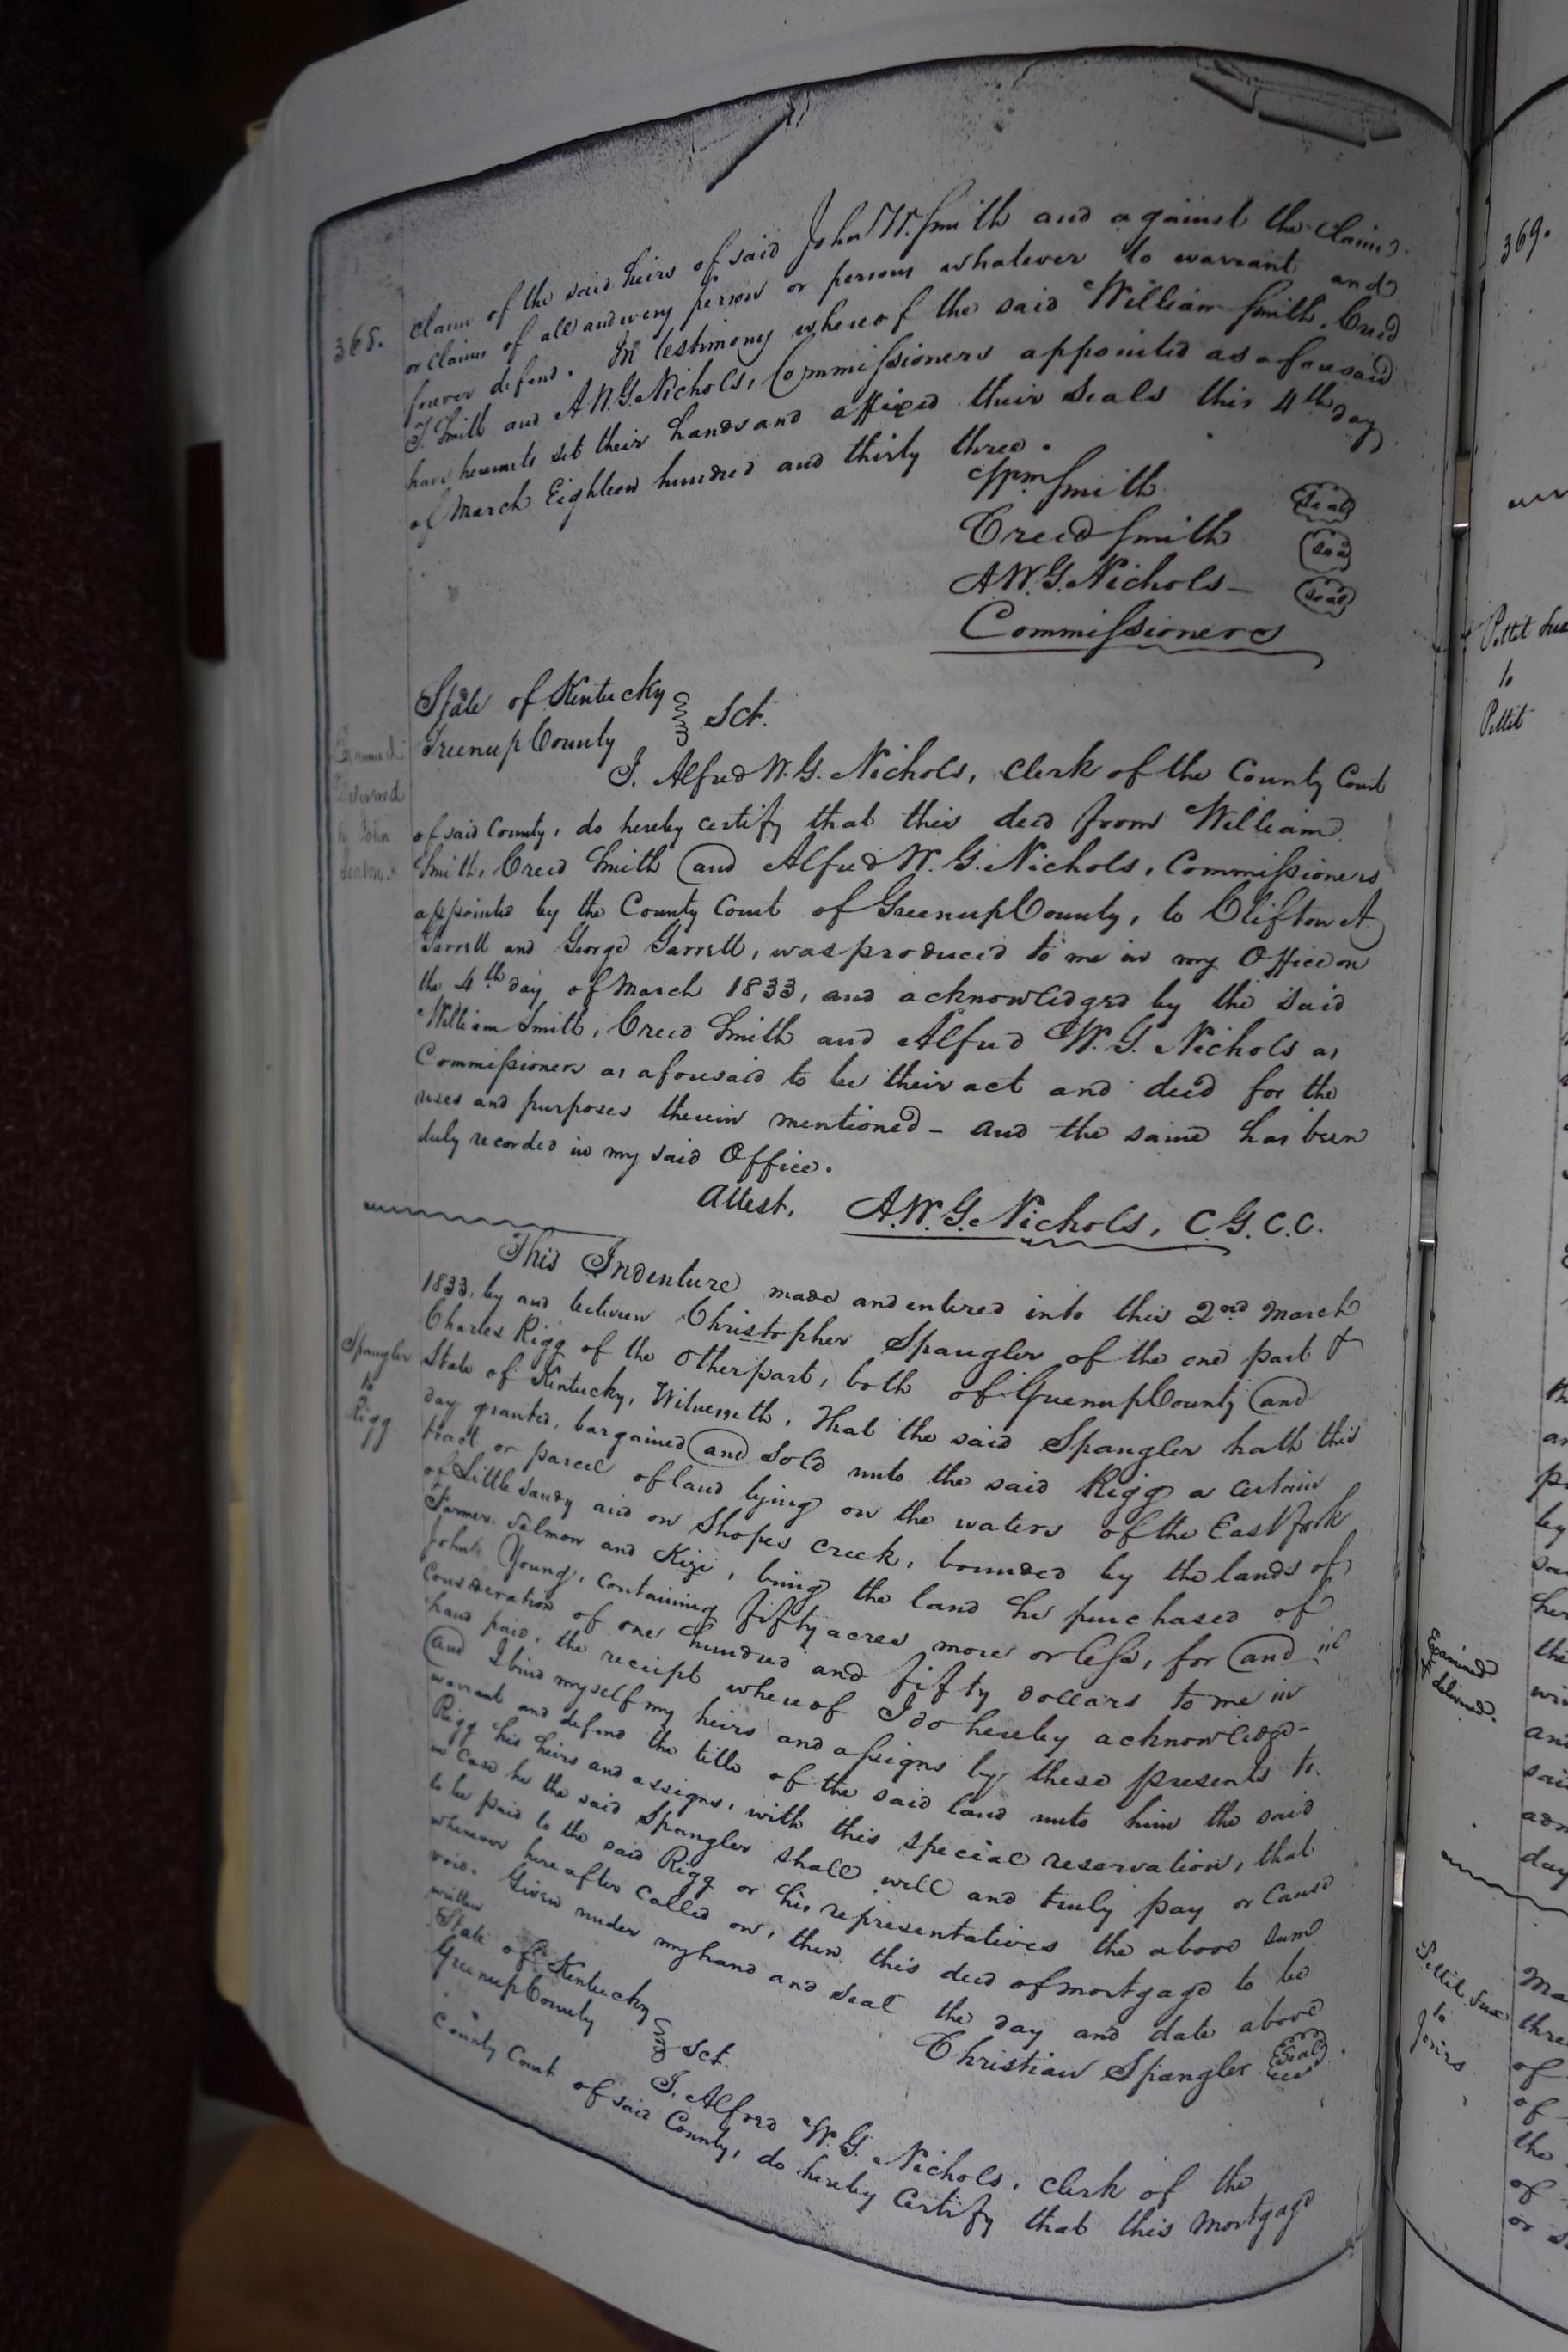 368.
claim of the said heirs of said John W. Smith and against the claim
or claims of all and every person or persons whatever to warrant and
forever defend. In testimony whereof the said William Smith, Creed
T. Smith and A.W.G. Nichols, Commissioners appointed as aforesaid
have hereunto set their hands and affixed their seals this 4th day
of March Eighteen hundred and thirty three.
Wm Smith seal
Creed Smith seal
A.W.G. Nichols seal
Commissioners
State of Kentucky
Greenup County Sct.
Examined
Delivered
to John
I. Alfred W. G. Nichols, Clerk of the County Court
of said County, do hereby certify that this deed from William
Smith, Creed Smith and Alfred W. G. Nichols, Commissioners
appointed by the County Court of Greenup County, to Clifton A.
Garrett and George Garrett, was produced to me in my Office on
the 4th day of March 1833, and acknowledged by the said
William Smith, Creed Smith and Alfred W. G. Nichols as
Commissioners as aforesaid to be their act and deed for the
uses and purposes therein mentioned - and the same has been
duly recorded in my said Office.
Attest, A.W.G. Nichols, C.G.C.C.
Spangler
to
Rigg
This Indenture made and entered into this 2nd March
1833, by and between Christopher Spangler of the one part &
Charles Rigg of the other part, both of Greenup County and
State of Kentucky, Witnesseth, That the said Spangler hath this
day granted, bargained and sold unto the said Rigg a certain
tract or parcel of land lying on the waters of the East fork
of Little Sandy and on Shopes creek, bounded by the lands of
Farmer, Salmon and Kizi, being the land he purchased of
John Young, containing fifty acres more or less, for and in
consideration of one hundred and fifty dollars to me in
hand paid, the receipt whereof I do hereby acknowledge-
and I bind myself my heirs and assigns by these presents to
warrant and defend the title of the said land unto him the said
Rigg his heirs and assigns, with this special reservation, that
in case he the said Spangler shall well and truly pay or cause
to be paid to the said Rigg or his representatives the above sum
whenever hereafter called on, then this deed of mortgage to be
void. Given under my hand and seal the day and date above
written
Christian Spangler Seal
State of Kentucky
Greenup County Sct.
I. Alfred W. G. Nichols, clerk of the
County Court of said County, do hereby certify that this Mortgage
369.
Pettit
to
Pettit
Examined
& delivered.
Pettit
to